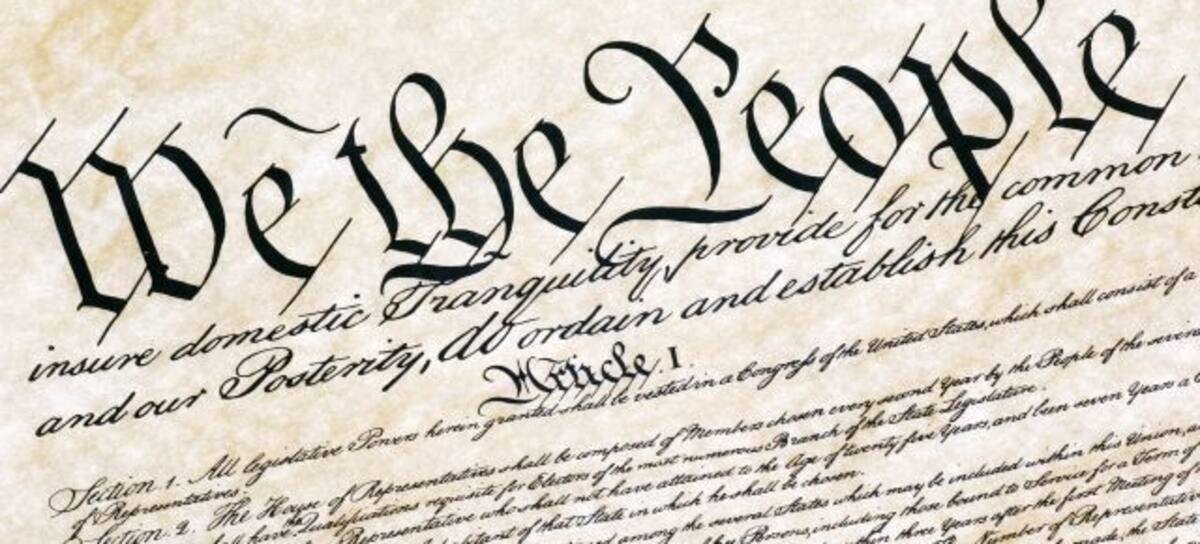 We the People
insure domestic Tranquility, provide for the common
and our Posterity, do ordain and establish this Const
Article. I.
Section. 1. All legislative Powers herein granted shall be vested in a Congress of the United States, which shall consist of a
of Representatives.
Section. 2. The House of Representatives shall be composed of Members chosen every second Year by the People of the several
shall have the Qualifications requisite for Electors of the most numerous Branch of the State Legislature.
Representative who shall not have attained to the Age of twenty five Years, and been seven Years a
of that State in which he shall be chosen.
among the several States which may be included within this Union,
Persons, including those bound to Service for a Term of
three Years after the first Meeting of
Number of Representatives
made, the State